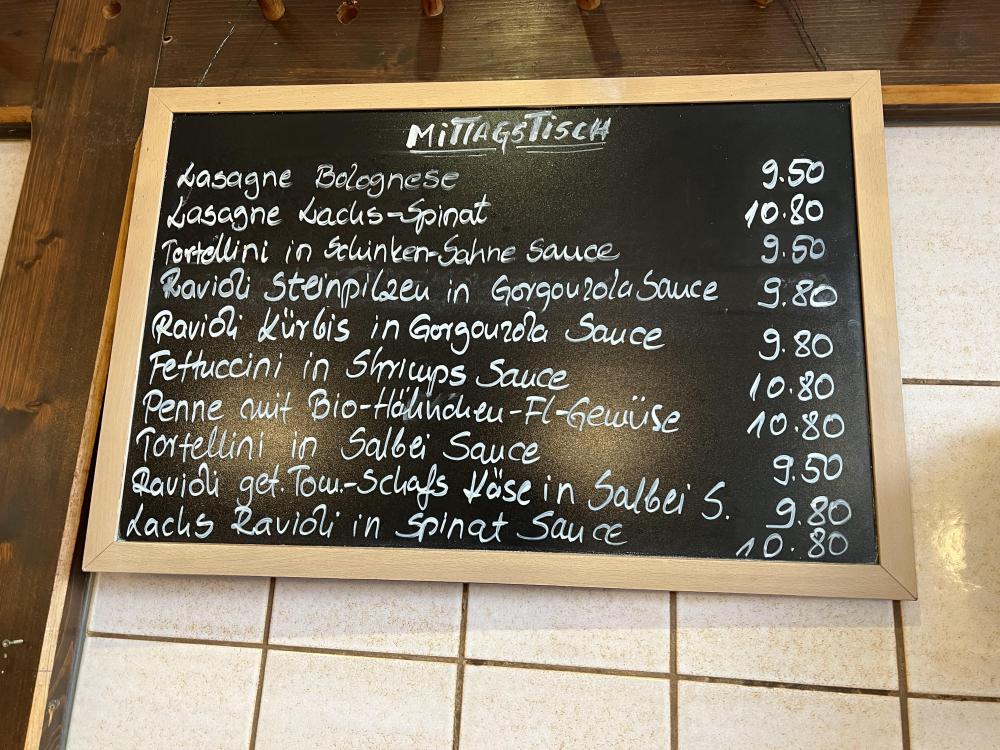 MITTAGSTISCH
Lasagne Bolognese 9.50
Lasagne Lachs-Spinat 10.80
Tortellini in Schinken-Sahne Sauce 9.50
Ravioli Steinpilzen in Gorgonzola Sauce 9.80
Ravioli Kürbis in Gorgonzola Sauce 9.80
Fettuccini in Shrimps Sauce 10.80
Penne mit Bio-Hähnchen-Fl-Gemüse 10.80
Tortellini in Salbei Sauce 9.50
Ravioli get. Tom.-Schafs Käse in Salbei S. 9.80
Lachs Ravioli in Spinat Sauce 10.80